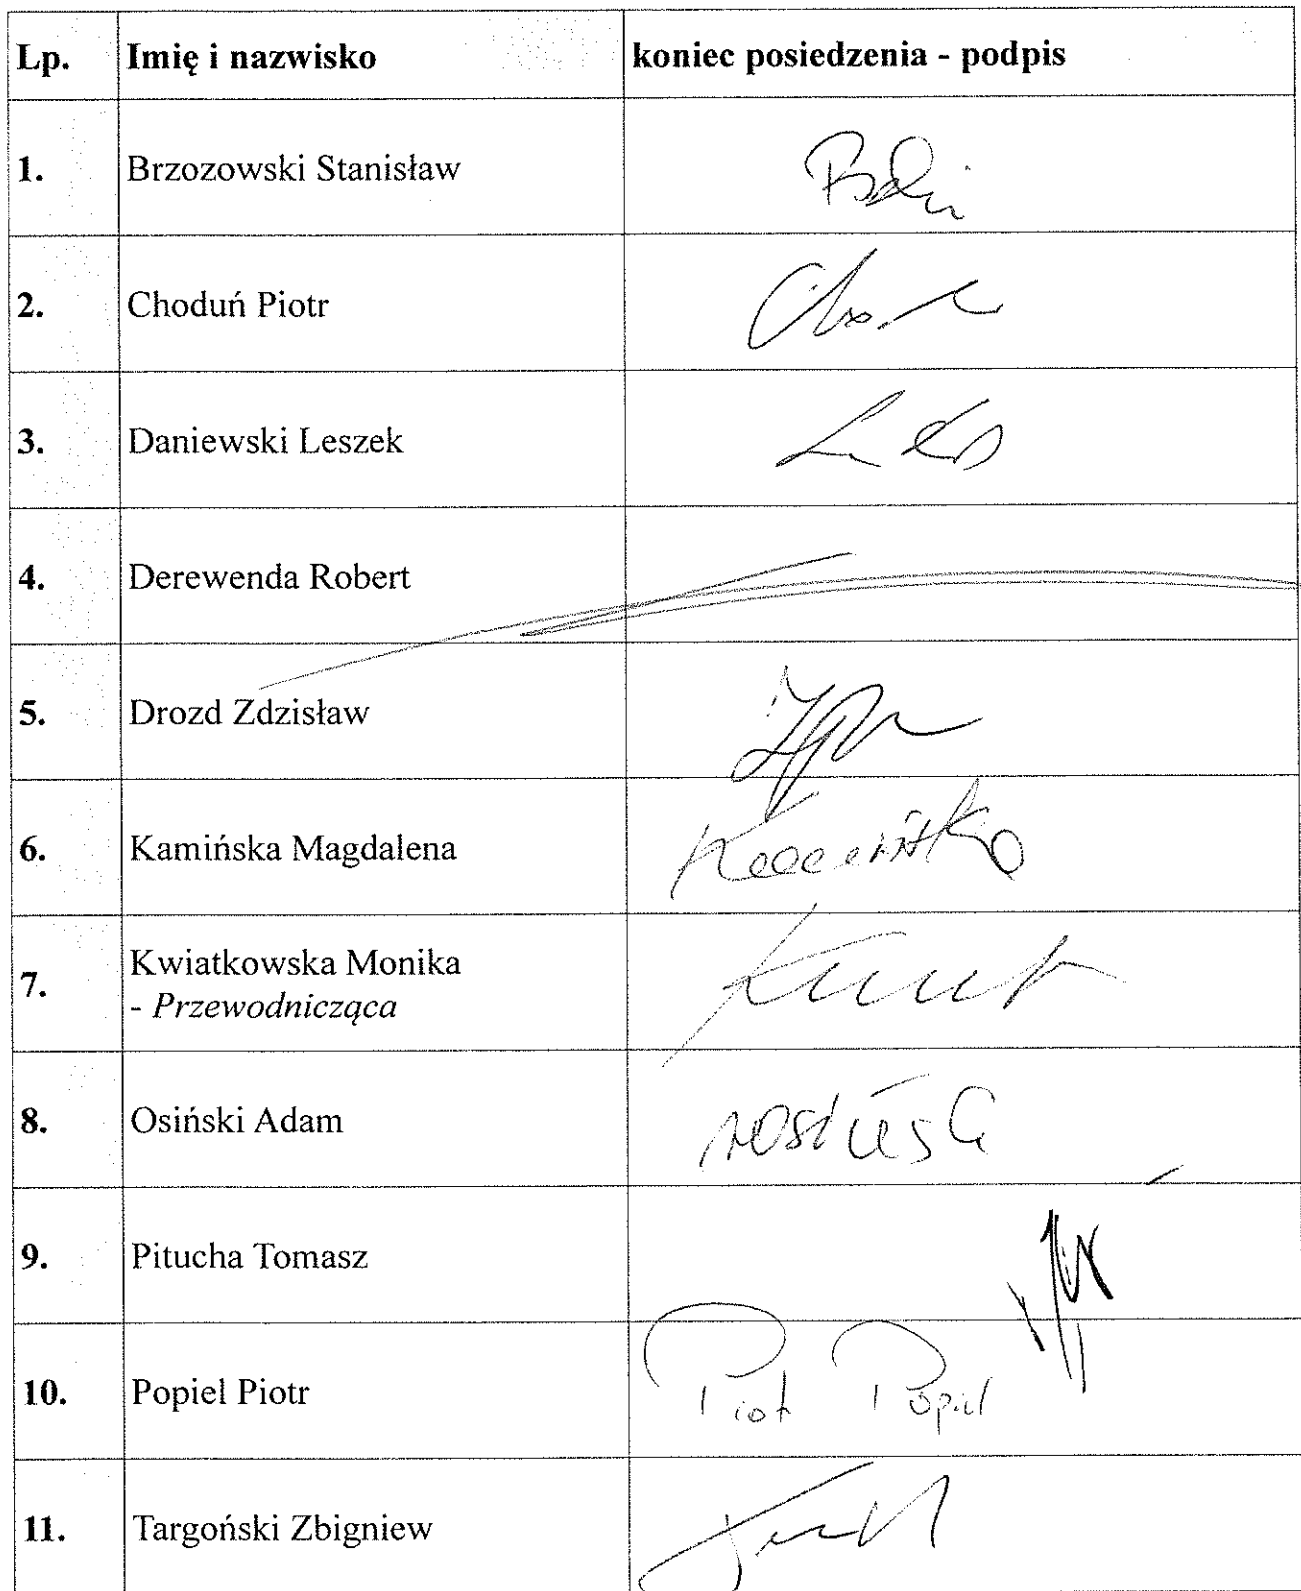 Lp. Imię i nazwisko koniec posiedzenia - podpis
1. Brzozowski Stanisław
2. Choduń Piotr
3. Daniewski Leszek
4. Derewenda Robert
5. Drozd Zdzisław
6. Kamińska Magdalena Kamińska
7. Kwiatkowska Monika
- Przewodnicząca
8. Osiński Adam
9. Pitucha Tomasz
10. Popiel Piotr Piotr Popiel
11. Targoński Zbigniew